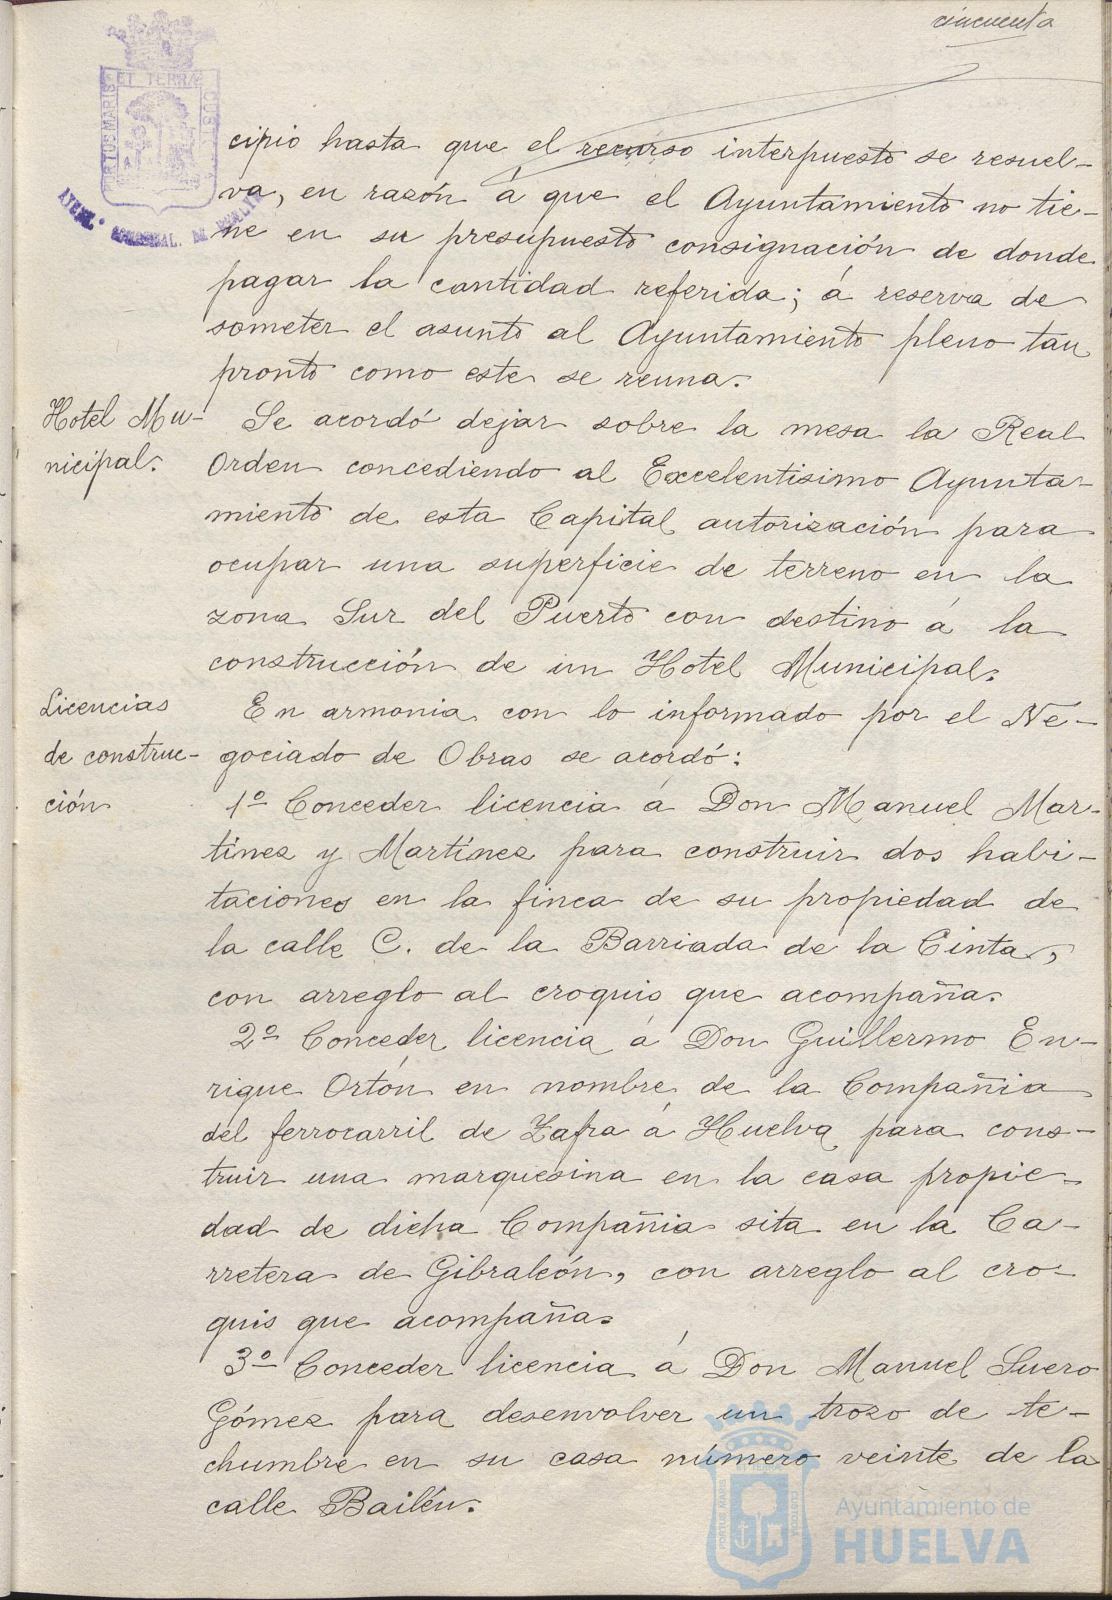 cincuenta
PORTUS MARIS ET TERRÆ CUSTODIA
cipio hasta que el recurso interpuesto se resuel-
va, en razón á que el Ayuntamiento no tie-
ne en su presupuesto consignación de donde
pagar la cantidad referida; á reserva de
someter el asunto al Ayuntamiento pleno tan
pronto como este se reuna.
Hotel Mu-
nicipal.
Se acordó dejar sobre la mesa la Real
Orden concediendo al Excelentisimo Ayunta-
miento de esta Capital autorización para
ocupar una superficie de terreno en la
zona Sur del Puerto con destino á la
construcción de un Hotel Municipal.
Licencias
de construc-
ción
En armonia con lo informado por el Ne-
gociado de Obras se acordó:
1º Conceder licencia á Don Manuel Mar-
tínez y Martínez para construir dos habi-
taciones en la finca de su propiedad de
la calle C. de la Barriada de la Cinta,
con arreglo al croquis que acompaña.
2º Conceder licencia á Don Guillermo En-
rique Ortón en nombre de la Compañia
del ferrocarril de Zafra á Huelva para cons-
truir una marquesina en la casa propie-
dad de dicha Compañia sita en la Ca-
rretera de Gibraleón, con arreglo al cro-
quis que acompaña.
3º Conceder licencia á Don Manuel Suero
Gómez para desenvolver un trozo de te-
chumbre en su casa número veinte de la
calle Bailén.
PORTUS MARIS CUSTODIA
Ayuntamiento de
HUELVA